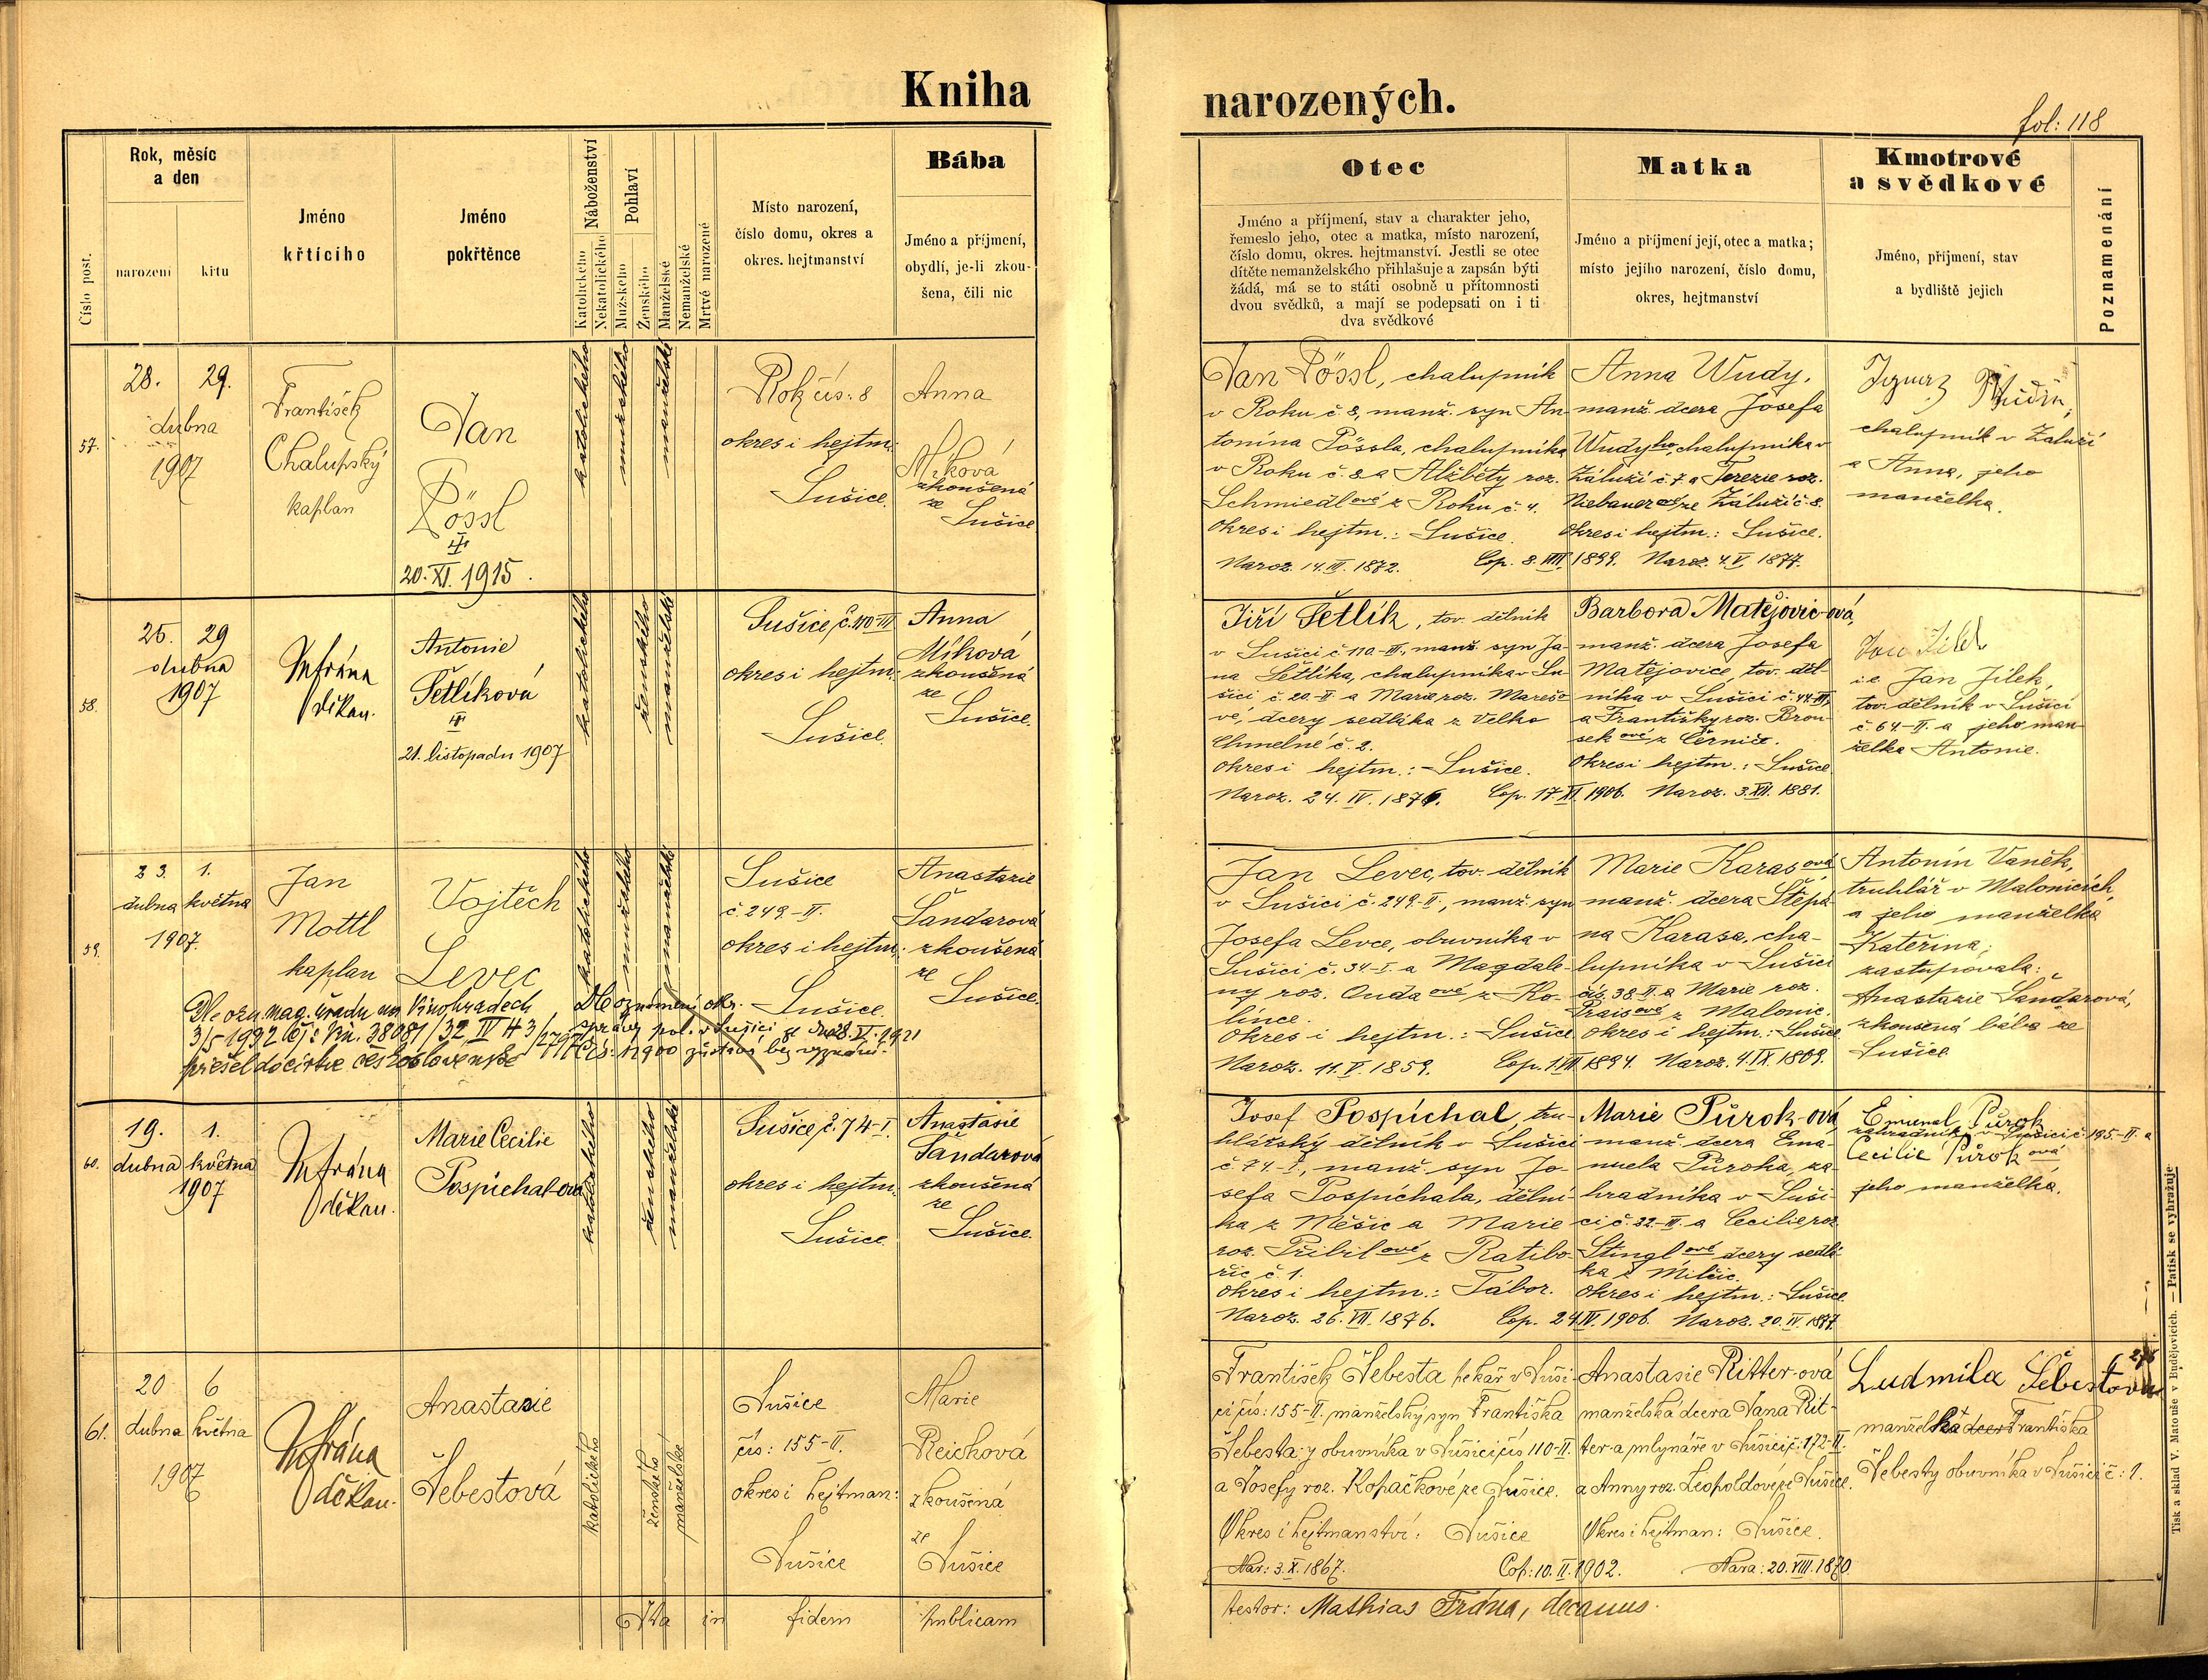 Kniha
narozených.
fol: 118
Číslo post.
Rok, měsíc
a den
narození
křtu
Jméno
křtícího
Jméno
pokřtěnce
Náboženství
Katolického
Nekatolického
Pohlaví
Mužského
Ženského
Manželské
Nemanželské
Mrtvě narozené
Místo narození,
číslo domu, okres a
okres. hejtmanství
Bába
Jméno a příjmení,
obydlí, je-li zkou-
šena, čili nic
Otec
Jméno a příjmení, stav a charakter jeho,
řemeslo jeho, otec a matka, místo narození,
číslo domu, okres. hejtmanství. Jestli se otec
dítěte nemanželského přihlašuje a zapsán býti
žádá, má se to státi osobně u přítomnosti
dvou svědků, a mají se podepsati on i ti
dva svědkové
Matka
Jméno a příjmení její, otec a matka;
místo jejího narození, číslo domu,
okres, hejtmanství
Kmotrové
a svědkové
Jméno, příjmení, stav
a bydliště jejich
Poznamenání
57.
28. 29.
dubna
1907
František
Chalupský
kaplan
Jan
Pössl
20. XI. 1915.
katolického
mužského
manželské
Rok čís: 8
okres i hejtm.
Sušice.
Anna
Míková
zkoušená
ze
Sušice
Jan Pössl, chalupník
v Roku č. 8, manž. syn An-
tonína Pössla, chalupníka
v Roku č. 8 a Alžběty roz.
Schmiedlové z Roku č. 4.
okres i hejtm.: Sušice.
Naroz. 14. III. 1872. Cop. 8. VIII. 1899.
Anna Wudy,
manž. dcera Josefa
Wudyho, chalupníka v
Záluží č. 7 a Terezie roz.
Niebauerové ze Záluží č. 8.
okres i hejtm.: Sušice.
Naroz. 4. V. 1877.
Ignaz
chalupník v Záluží
a Anna, jeho
manželka.
58.
25. 29
dubna
1907
M Frána
děkan.
Antonie
Šetlíková
21. listopadu 1907
katolického
ženského
manželské
Sušice, č. 110-III
okres i hejtm.
Sušice.
Anna
Míková
zkoušená
ze
Sušice.
Jiří Šetlík, tov. dělník
v Sušici č 110-III., manž. syn Ja-
na Šetlíka, chalupníka v Su-
šici č. 20-II a Marie roz. Marešo-
vé, dcery sedláka z Velko
Chmelné č. 2.
okres i hejtm.: Sušice.
Naroz. 24. IV. 1876. Cop. 17. XI. 1906.
Barbora Matějovic-ová,
manž. dcera Josefa
Matějovice, tov. děl-
níka v Sušici č. 44-III,
a Františky roz. Brou-
sekové z Černíče.
okres i hejtm.: Sušice
Naroz. 3. XII. 1881.
Jan Jílek
i.e. Jan Jílek,
tov. dělník v Sušici
č. 64-II. a jeho man-
želka Antonie.
59.
23. 1.
dubna května
1907.
Jan
Mottl
kaplan
Vojtěch
Levec
katolického
mužského
manželské
Sušice
č. 249-II.
okres i hejtm.
Sušice.
Anastazie
Šandarová
zkoušená
ze
Sušice.
Dle ozn. mag. úřadu na Vinohradech
3/5 1932 38081/32 IV
přešel do církve československé
Dle oznámení okr.
správy pol. v Sušici ze dne 28. VI. 1921
čís: 12900 zůstává bez vyznání.
Jan Levec, tov. dělník
v Sušici č. 249-II., manž. syn
Josefa Levce, obuvníka v
Sušici č. 34-I. a Magdale-
ny roz. Oudaové z Ko-
línce.
okres i hejtm.: Sušice
Naroz. 11. V. 1859.
Marie Karasová
manž. dcera Štěpá-
na Karasa, cha-
lupníka v Sušici
čís. 38 II. a Marie roz.
Praisové z Malonic.
okres i hejtm.: Sušice
Naroz. 4. IX. 1869.
Antonín Vaněk,
truhlář v Malonicích,
a jeho manželka
Kateřina;
zastupovala:
Anastazie Šandarová,
zkoušená bába ze
Sušice
60.
19. 1.
dubna května
1907
M Frána
děkan.
Marie Cecilie
Pospíchal-ová
katolického
ženského
manželské
Sušice, č. 74-I.
okres i hejtm.
Sušice.
Anastasie
Šandarová
zkoušená
ze
Sušice.
Josef Pospíchal, tru-
hlářský dělník v Sušici
č. 74-I., manž. syn Jo-
sefa Pospíchala, dělní-
ka z Měšic a Marie
roz. Přibilové z Ratibo-
řic č. 1.
okres i hejtm.: Tábor.
Naroz. 26. VII. 1876. Cop. 24. IV. 1906.
Marie Půrok-ová
manž. dcera Ema-
nuela Půroka, za-
hradníka v Suši-
ci č. 32-III. a Cecilie roz.
Stinglové dcery sedlá-
ka z Milčic.
okres i hejtm.: Sušice.
Naroz. 20. IV. 1877.
Emanuel Půrok
zahradník v Sušici č. 195-II. a
Cecilie Půroková
jeho manželka.
61.
20 6
dubna května
1907
M Frána
děkan.
Anastasie
Šebestová
katolického
ženského
manželské
Sušice
čís: 155-II.
okres i hejtman:
Sušice
Marie
Reichová
zkoušená
ze
Sušice
František Šebesta pekař v Suši-
ci čís: 155-II. manželský syn Františka
Šebesta-y obuvníka v Sušici čís 110-II.
a Josefy roz. Kopačkové ze Sušice.
Okres i hejtmanství: Sušice
Nar: 3. X. 1867. Cop: 10. II. 1902.
Anastasie Ritter-ová
manželská dcera Jana Rit-
ter-a mlynáře v Sušici č: 172-II.
a Anny roz. Leopoldové ze Sušice.
Okres i hejtman: Sušice.
Nara: 20. VIII. 1870.
Ludmila Šebestová
manželka dcer Františka
Šebesty obuvníka v Sušici č: 1.
Ita in fidem publicam
testor: Mathias Frána, decanus.
Tisk a sklad V. Matouše v Budějovicích. — Patisk se vyhražuje